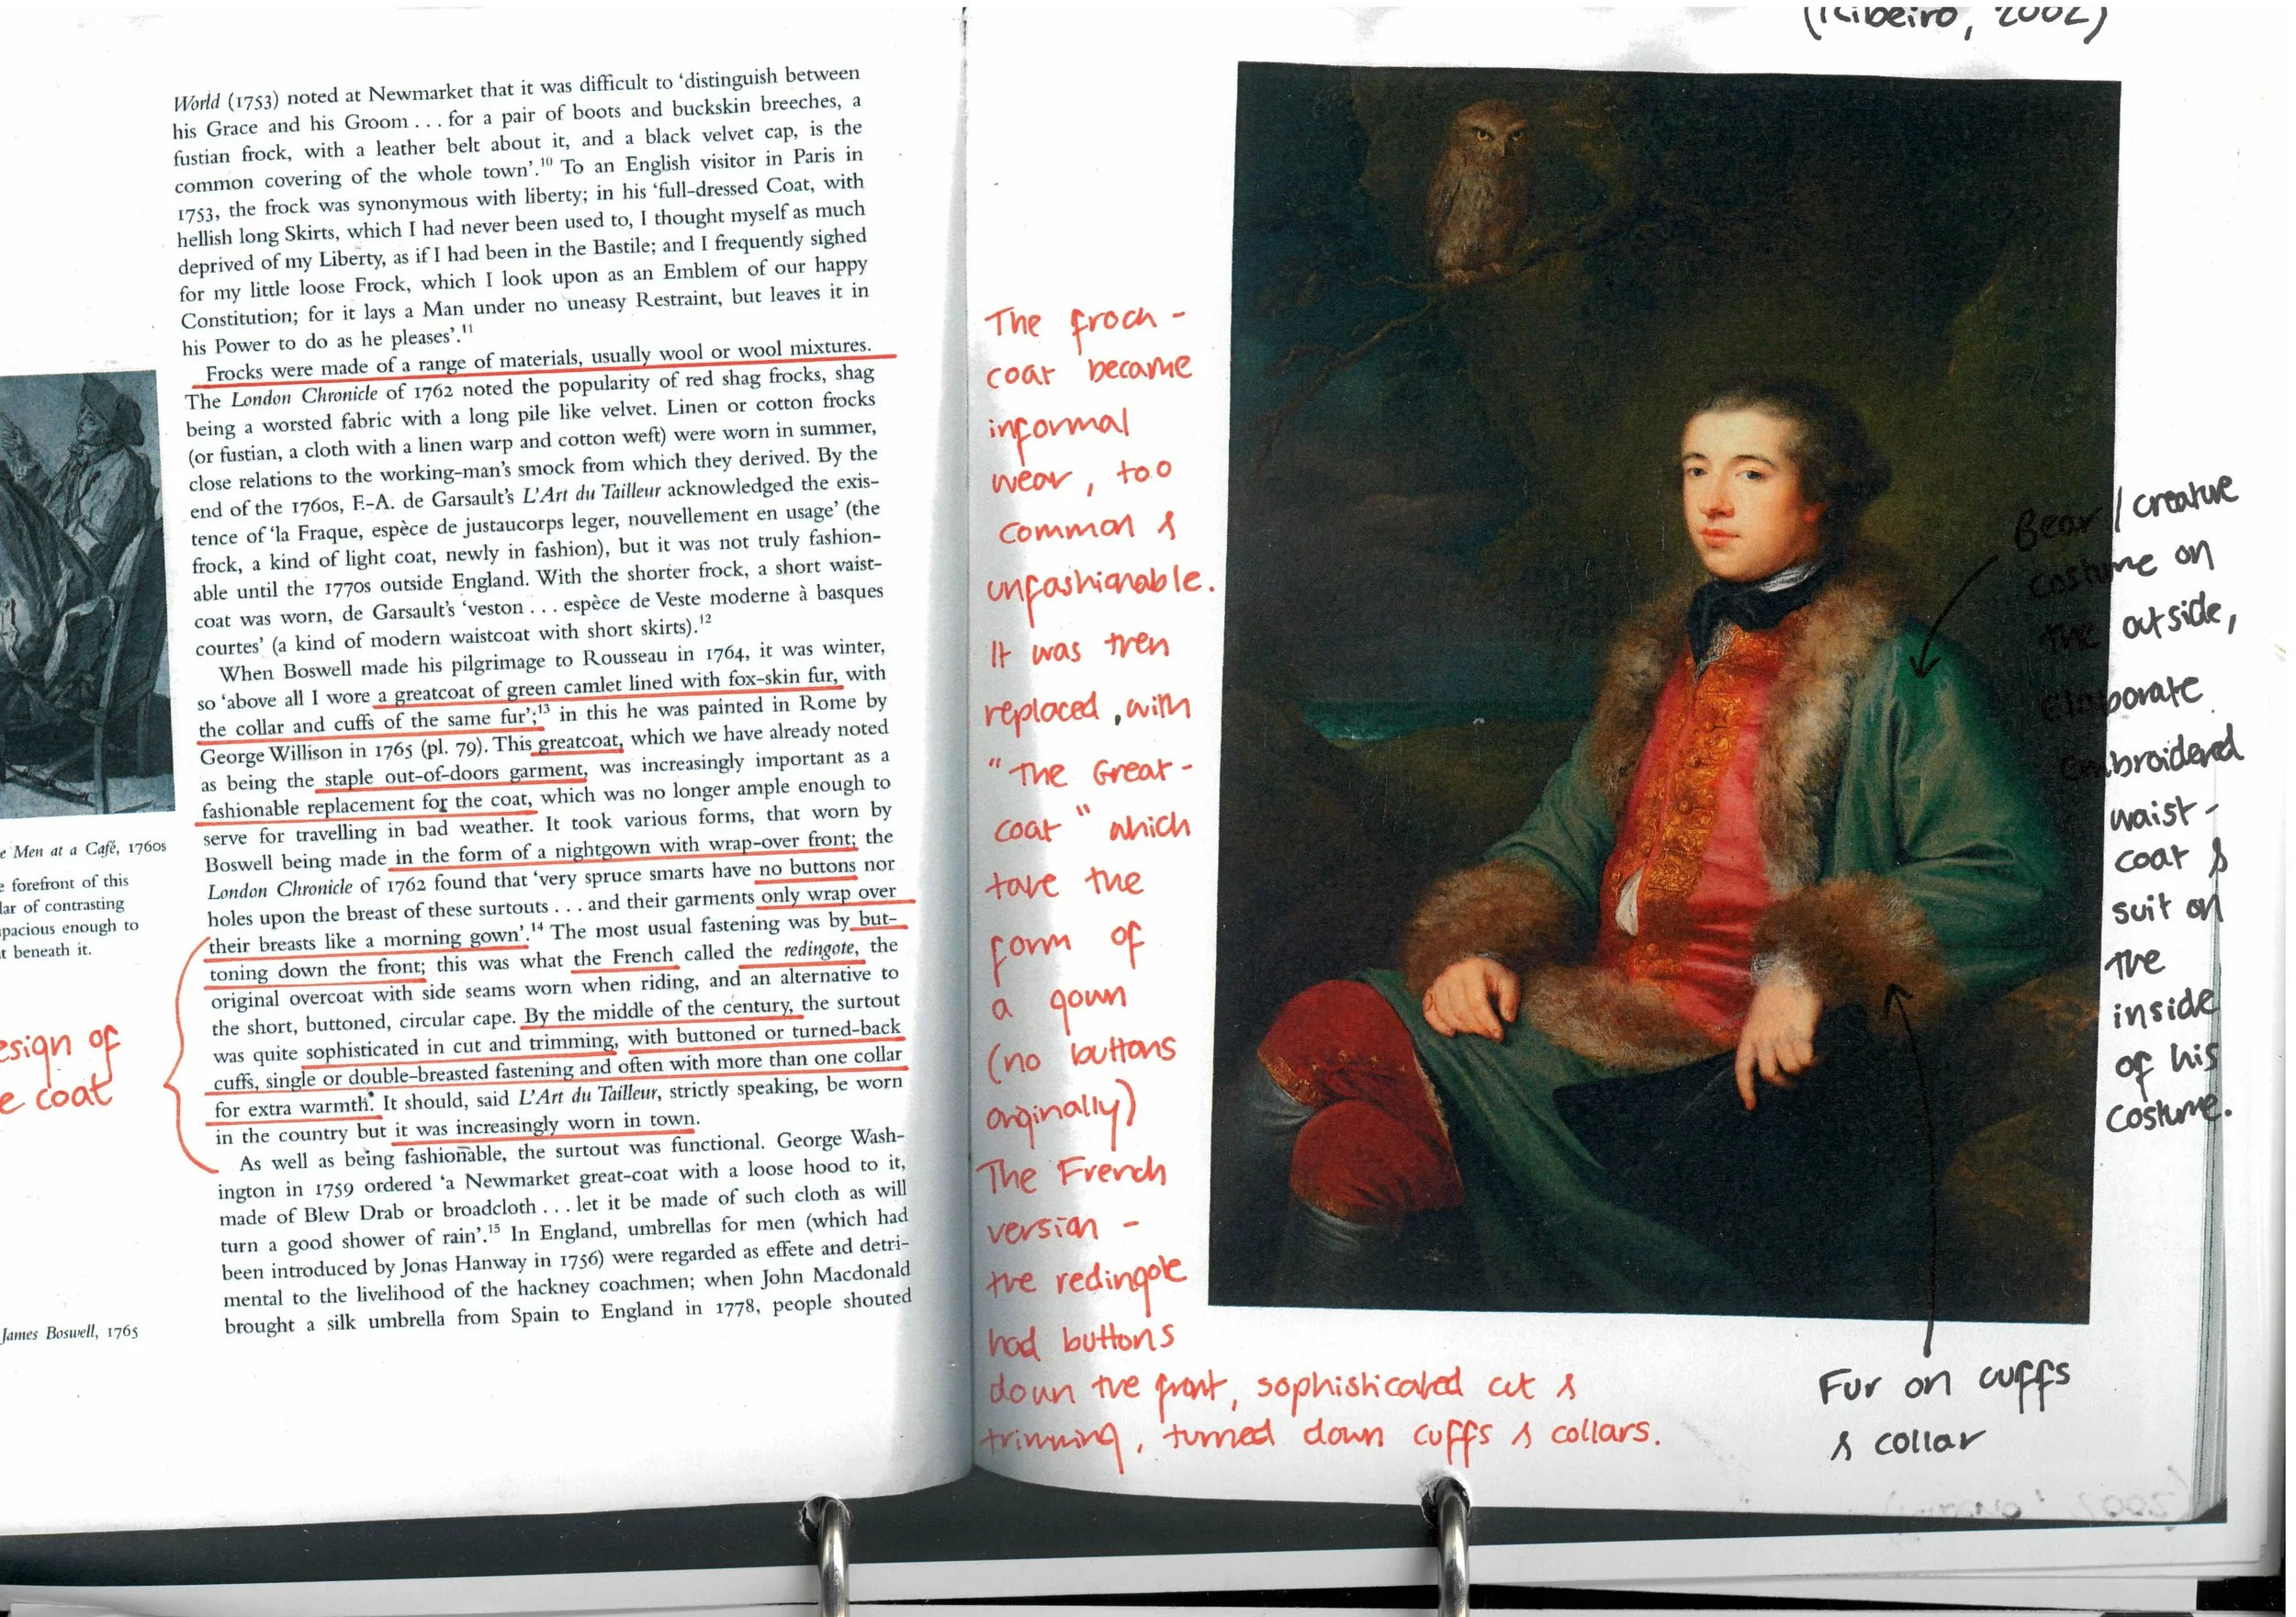 World (1753) noted at Newmarket that it was difficult to ‘distinguish between
his Grace and his Groom . . . for a pair of boots and buckskin breeches, a
fustian frock, with a leather belt about it, and a black velvet cap, is the
common covering of the whole town’.10 To an English visitor in Paris in
1753, the frock was synonymous with liberty; in his ‘full-dressed Coat, with
hellish long Skirts, which I had never been used to, I thought myself as much
deprived of my Liberty, as if I had been in the Bastile; and I frequently sighed
for my little loose Frock, which I look upon as an Emblem of our happy
Constitution; for it lays a Man under no uneasy Restraint, but leaves it in
his Power to do as he pleases’.11
Frocks were made of a range of materials, usually wool or wool mixtures.
The London Chronicle of 1762 noted the popularity of red shag frocks, shag
being a worsted fabric with a long pile like velvet. Linen or cotton frocks
(or fustian, a cloth with a linen warp and cotton weft) were worn in summer,
close relations to the working-man’s smock from which they derived. By the
end of the 1760s, F.-A. de Garsault’s L’Art du Tailleur acknowledged the exis-
tence of ‘la Fraque, espèce de justaucorps leger, nouvellement en usage’ (the
frock, a kind of light coat, newly in fashion), but it was not truly fashion-
able until the 1770s outside England. With the shorter frock, a short waist-
coat was worn, de Garsault’s ‘veston . . . espèce de Veste moderne à basques
courtes’ (a kind of modern waistcoat with short skirts).12
When Boswell made his pilgrimage to Rousseau in 1764, it was winter,
so ‘above all I wore a greatcoat of green camlet lined with fox-skin fur, with
the collar and cuffs of the same fur’;13 in this he was painted in Rome by
George Willison in 1765 (pl. 79). This greatcoat, which we have already noted
as being the staple out-of-doors garment, was increasingly important as a
fashionable replacement for the coat, which was no longer ample enough to
serve for travelling in bad weather. It took various forms, that worn by
Boswell being made in the form of a nightgown with wrap-over front; the
London Chronicle of 1762 found that ‘very spruce smarts have no buttons nor
holes upon the breast of these surtouts . . . and their garments only wrap over
their breasts like a morning gown’.14 The most usual fastening was by but-
toning down the front; this was what the French called the redingote, the
original overcoat with side seams worn when riding, and an alternative to
the short, buttoned, circular cape. By the middle of the century, the surtout
was quite sophisticated in cut and trimming, with buttoned or turned-back
cuffs, single or double-breasted fastening and often with more than one collar
for extra warmth. It should, said L’Art du Tailleur, strictly speaking, be worn
in the country but it was increasingly worn in town.
As well as being fashionable, the surtout was functional. George Wash-
ington in 1759 ordered ‘a Newmarket great-coat with a loose hood to it,
made of Blew Drab or broadcloth . . . let it be made of such cloth as will
turn a good shower of rain’.15 In England, umbrellas for men (which had
been introduced by Jonas Hanway in 1756) were regarded as effete and detri-
mental to the livelihood of the hackney coachmen; when John Macdonald
brought a silk umbrella from Spain to England in 1778, people shouted
Men at a Café, 1760s
forefront of this
of contrasting
enough to
beneath it.
of
coat
James Boswell, 1765
(Ribeiro, 2002)
The froch -
coat became
informal
wear, too
common &
unfashionable.
It was then
replaced, with
"The Great -
coat" which
take the
form of
a gown
(no buttons
orginally)
The French
version -
the redingole
had buttons
down the front, sophisticated cut &
trimming, turned down cuffs & collars.
Bear / creature
costume on
the outside,
elaborate
embroidered
waist -
coat &
suit on
the
inside
of his
costume.
Fur on cuffs
& collar